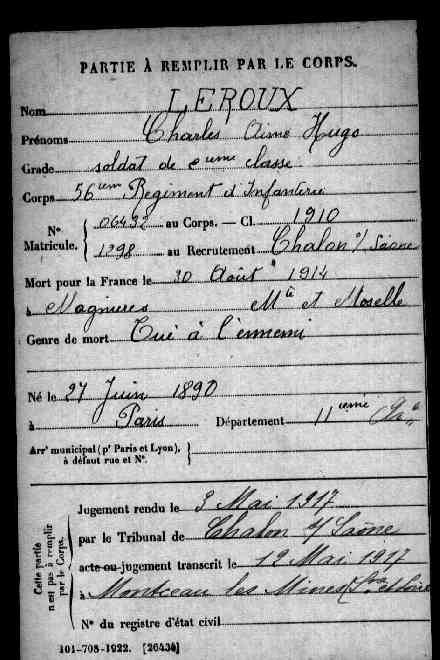 PARTIE À REMPLIR PAR LE CORPS.
Nom LEROUX
Prénoms Charles Aimé Hugo
Grade soldat de 2ieme classe
Corps 56ieme Régiment d'Infanterie
N° Matricule. { 06432 au Corps. — Cl. 1910
1298 au Recrutement Chalon s/ Saône
Mort pour la France le 30 Août 1914
à Magnieres Mthe et Moselle
Genre de mort Tué à l'ennemi
Né le 27 Juin 1890
à Paris Département 11ieme
Arrt municipal (pr Paris et Lyon), }
à défaut rue et N°.
Cette partie n'est pas à remplir par le Corps.
Jugement rendu le 3 Mai 1917
par le Tribunal de Chalon s/ Saône
acte ou jugement transcrit le 12 Mai 1917
à Montceau les Mines (Sne et Loire
N° du registre d'état civil
101-708-1922. [26434]